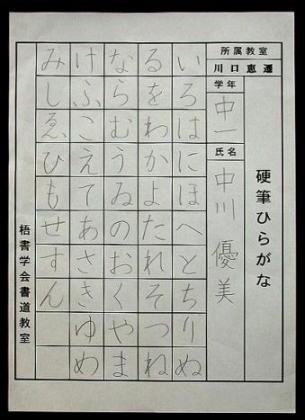 硬筆ひらがな
所属教室
川口恵遷
学年
中一
氏名
中川 優美
いろはにほへとちりぬ
るをわかよたれそつね
ならむうゐのおくやま
けふこえてあさきゆめ
みしゑひもせすん
梧書学会書道教室